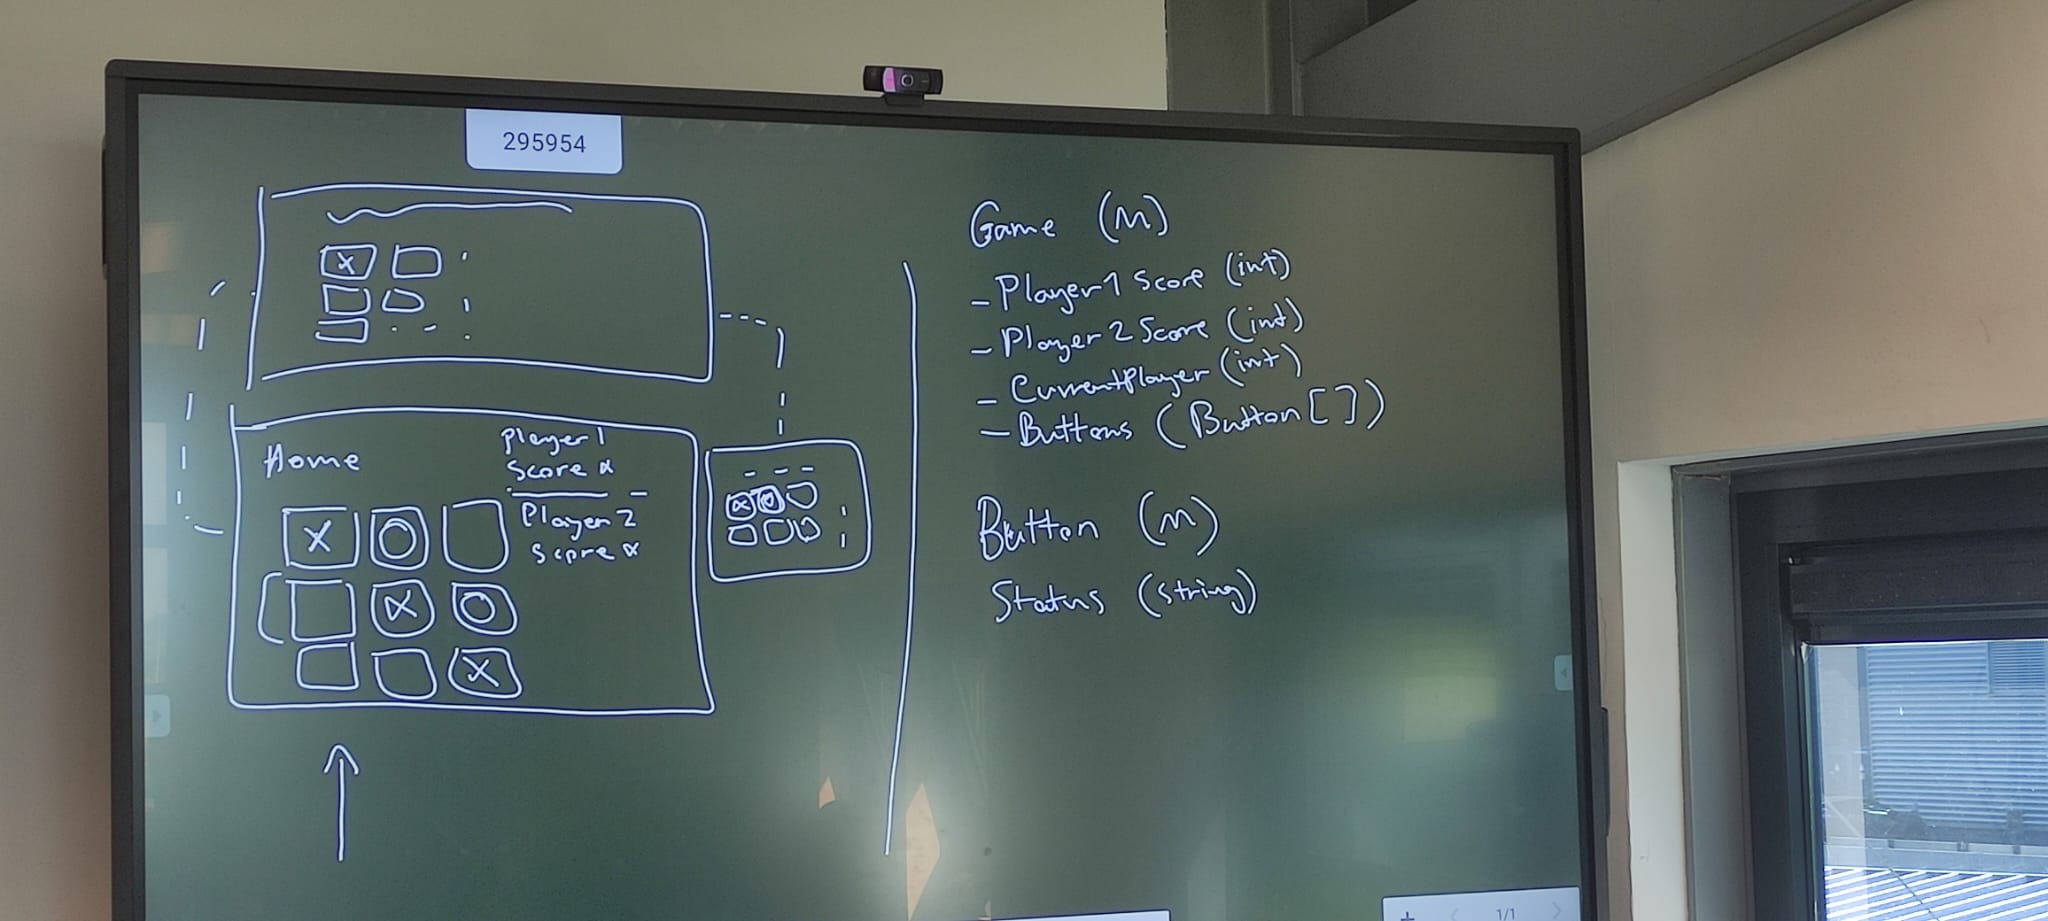 295954
Home
Player 1
Score x
Player 2
Score x
X O
X O
X
X
X O
Game (M)
- Player1 Score (int)
- Player 2 Score (int)
- CurrentPlayer (int)
- Buttons (Button[])
Button (M)
Status (string)
1/1